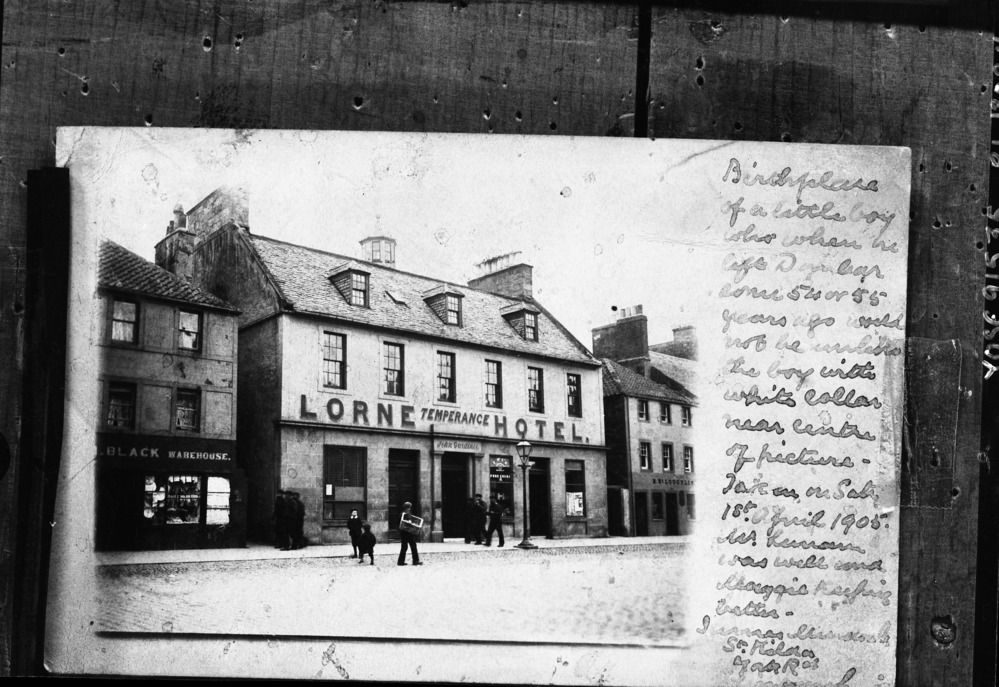 BLACK WAREHOUSE.
LORNE TEMPERANCE HOTEL.
John Goodall
Birthplace
of a little boy
who when he
left Dunbar
some 54 or 55
years ago would
not be unlike
the boy with
white collar
near centre
of picture -
Taken on Sat,
1st April 1905.
Mr.
was well and
Maggie keeping
better -
James
St Kilda
York Rd